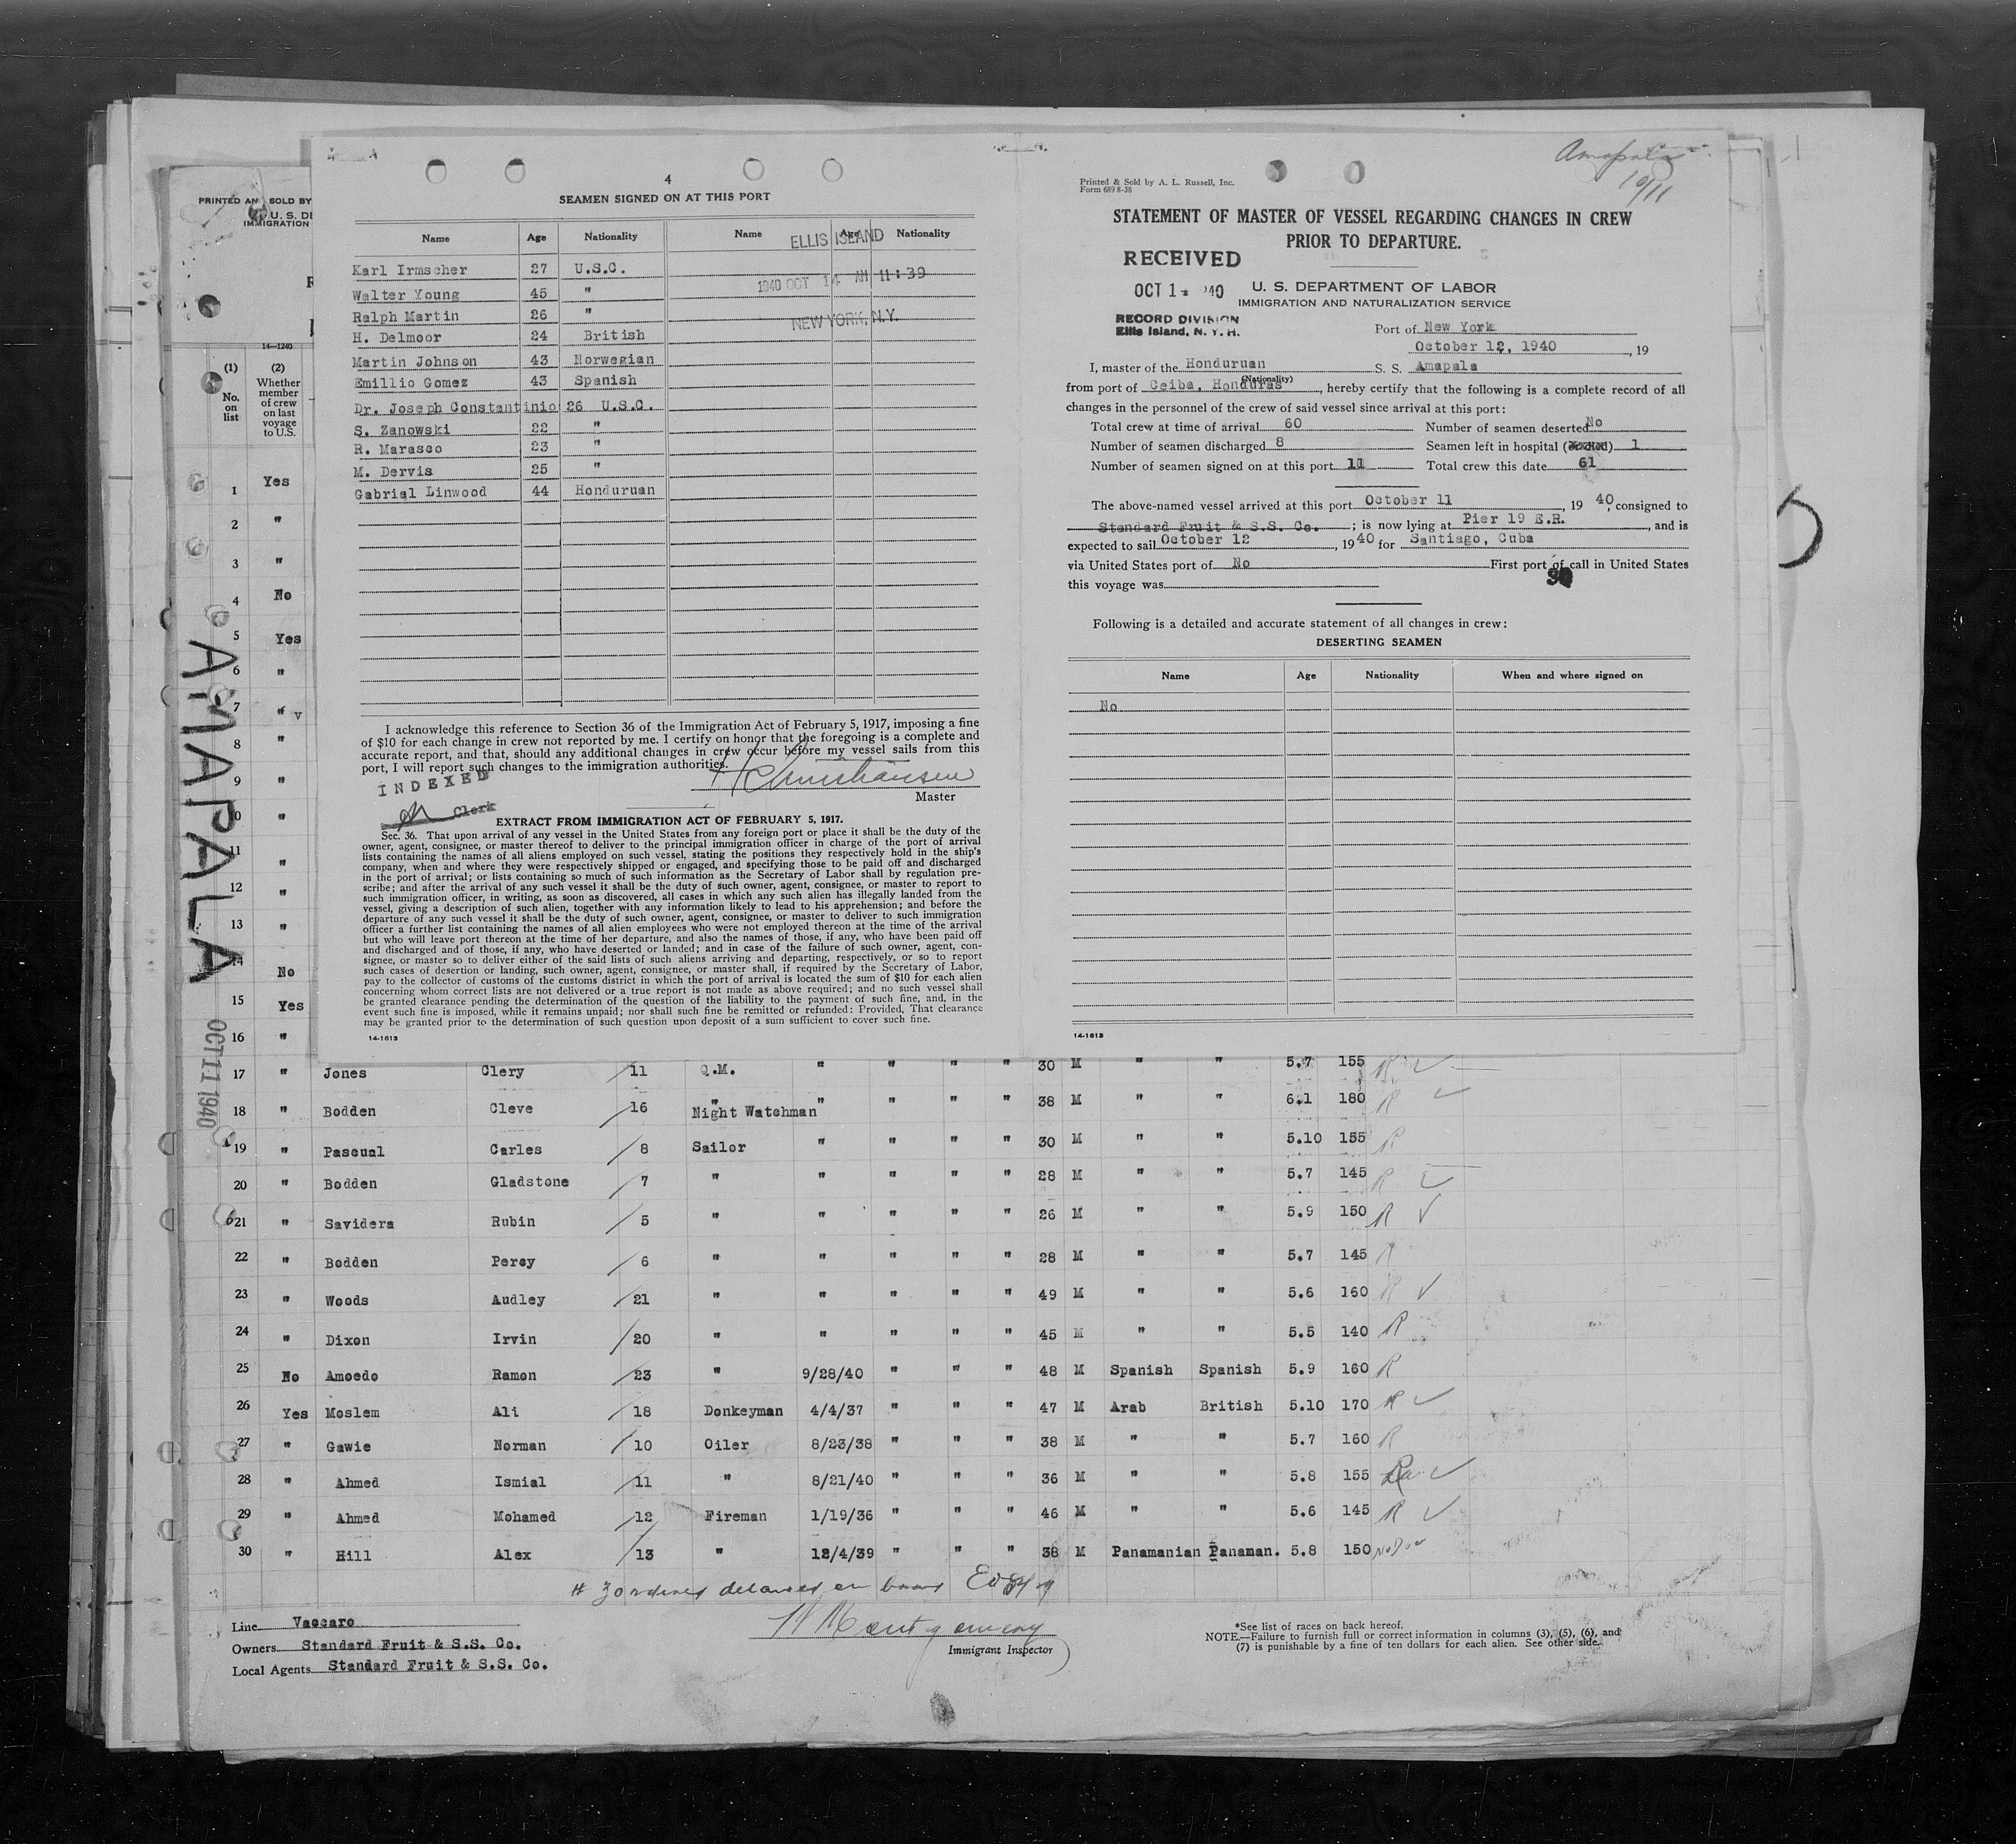 4
SEAMEN SIGNED ON AT THIS PORT
Name Age Nationality Name Age Nationality
ELLIS ISLAND
1940 OCT 14 AM 11:39
NEW YORK, N.Y.
Karl Irmscher 27 U.S.C.
Walter Young 45 "
Ralph Martin 26 "
H. Delmoor 24 British
Martin Johnson 43 Norwegian
Emillio Gomez 43 Spanish
Dr. Joseph Constantinio 26 U.S.C.
S. Zanowski 22 "
R. Marasco 23 "
M. Dervis 25 "
Gabrial Linwood 44 Honduruan
I acknowledge this reference to Section 36 of the Immigration Act of February 5, 1917, imposing a fine
of $10 for each change in crew not reported by me. I certify on honor that the foregoing is a complete and
accurate report, and that, should any additional changes in crew occur before my vessel sails from this
port, I will report such changes to the immigration authorities.
H Christiansen
Master
INDEXED
Clerk
EXTRACT FROM IMMIGRATION ACT OF FEBRUARY 5, 1917.
Sec. 36. That upon arrival of any vessel in the United States from any foreign port or place it shall be the duty of the
owner, agent, consignee, or master thereof to deliver to the principal immigration officer in charge of the port of arrival
lists containing the names of all aliens employed on such vessel, stating the positions they respectively hold in the ship's
company, when and where they were respectively shipped or engaged, and specifying those to be paid off and discharged
in the port of arrival; or lists containing so much of such information as the Secretary of Labor shall by regulation pre-
scribe; and after the arrival of any such vessel it shall be the duty of such owner, agent, consignee, or master to report to
such immigration officer, in writing, as soon as discovered, all cases in which any such alien has illegally landed from the
vessel, giving a description of such alien, together with any information likely to lead to his apprehension; and before the
departure of any such vessel it shall be the duty of such owner, agent, consignee, or master to deliver to such immigration
officer a further list containing the names of all alien employees who were not employed thereon at the time of the arrival
but who will leave port thereon at the time of her departure, and also the names of those, if any, who have been paid off
and discharged and of those, if any, who have deserted or landed; and in case of the failure of such owner, agent, con-
signee, or master so to deliver either of the said lists of such aliens arriving and departing, respectively, or so to report
such cases of desertion or landing, such owner, agent, consignee, or master shall, if required by the Secretary of Labor,
pay to the collector of customs of the customs district in which the port of arrival is located the sum of $10 for each alien
concerning whom correct lists are not delivered or a true report is not made as above required; and no such vessel shall
be granted clearance pending the determination of the question of the liability to the payment of such fine, and, in the
event such fine is imposed, while it remains unpaid; nor shall such fine be remitted or refunded: Provided, That clearance
may be granted prior to the determination of such question upon deposit of a sum sufficient to cover such fine.
14-1613
Amapala
10/11
Printed & Sold by A. L. Russell, Inc.
Form 689 8-38
STATEMENT OF MASTER OF VESSEL REGARDING CHANGES IN CREW
PRIOR TO DEPARTURE.
RECEIVED
OCT 14 '40
RECORD DIVISION
Ellis Island, N. Y. H.
U. S. DEPARTMENT OF LABOR
IMMIGRATION AND NATURALIZATION SERVICE
Port of New York
October 12, 1940, 19
I, master of the Honduruan S. S. Amapala
(Nationality)
from port of Ceiba, Honduras, hereby certify that the following is a complete record of all
changes in the personnel of the crew of said vessel since arrival at this port:
Total crew at time of arrival 60 Number of seamen deserted No
Number of seamen discharged 8 Seamen left in hospital 1
Number of seamen signed on at this port 11 Total crew this date 61
The above-named vessel arrived at this port October 11, 19 40, consigned to
Standard Fruit & S.S. Co.; is now lying at Pier 19 E.R., and is
expected to sail October 12, 19 40 for Santiago, Cuba
via United States port of No First port of call in United States
this voyage was
Following is a detailed and accurate statement of all changes in crew:
DESERTING SEAMEN
Name Age Nationality When and where signed on
No
14-1613
PRINTED AN SOLD BY
U. S. DE
IMMIGRATION
14-1240
(1) (2)
No. on list
Whether member of crew on last voyage to U.S.
AMAPALA
OCT 11 1940
1 Yes
2 "
3 "
4 No
5 Yes
6 "
7 " v
8 "
9 "
10 "
11 "
12 "
13 "
14 No
15 Yes
16 "
17 " Jones Clery 11 Q.M. " " " " 30 M " " 5.7 155 R
18 " Bodden Cleve 16 " Night Watchman " " " " 38 M " " 6.1 180 R
19 " Pascual Carles 8 Sailor " " " " 30 M " " 5.10 155 R
20 " Bodden Gladstone 7 " " " " " 28 M " " 5.7 145 R
21 " Savidera Rubin 5 " " " " " 26 M " " 5.9 150 R
22 " Bodden Percy 6 " " " " " 28 M " " 5.7 145 R
23 " Woods Audley 21 " " " " " 49 M " " 5.6 160 R
24 " Dixon Irvin 20 " " " " " 45 M " " 5.5 140 R
25 No Amoedo Ramon 23 " 9/28/40 " " " 48 M Spanish Spanish 5.9 160 R
26 Yes Moslem Ali 18 Donkeyman 4/4/37 " " " 47 M Arab British 5.10 170 R
27 " Gawie Norman 10 Oiler 8/23/38 " " " 38 M " " 5.7 160 R
28 " Ahmed Ismial 11 " 8/21/40 " " " 36 M " " 5.8 155
29 " Ahmed Mohamed 12 Fireman 1/19/36 " " " 46 M " " 5.6 145 R
30 " Hill Alex 13 " 12/4/39 " " " 38 M Panamanian Panaman. 5.8 150
# 30 ordered detained on board
Line Vaccaro
Owners Standard Fruit & S.S. Co.
Local Agents Standard Fruit & S.S. Co.
W Montgomery
Immigrant Inspector
*See list of races on back hereof.
NOTE.—Failure to furnish full or correct information in columns (3), (5), (6), and
(7) is punishable by a fine of ten dollars for each alien. See other side.